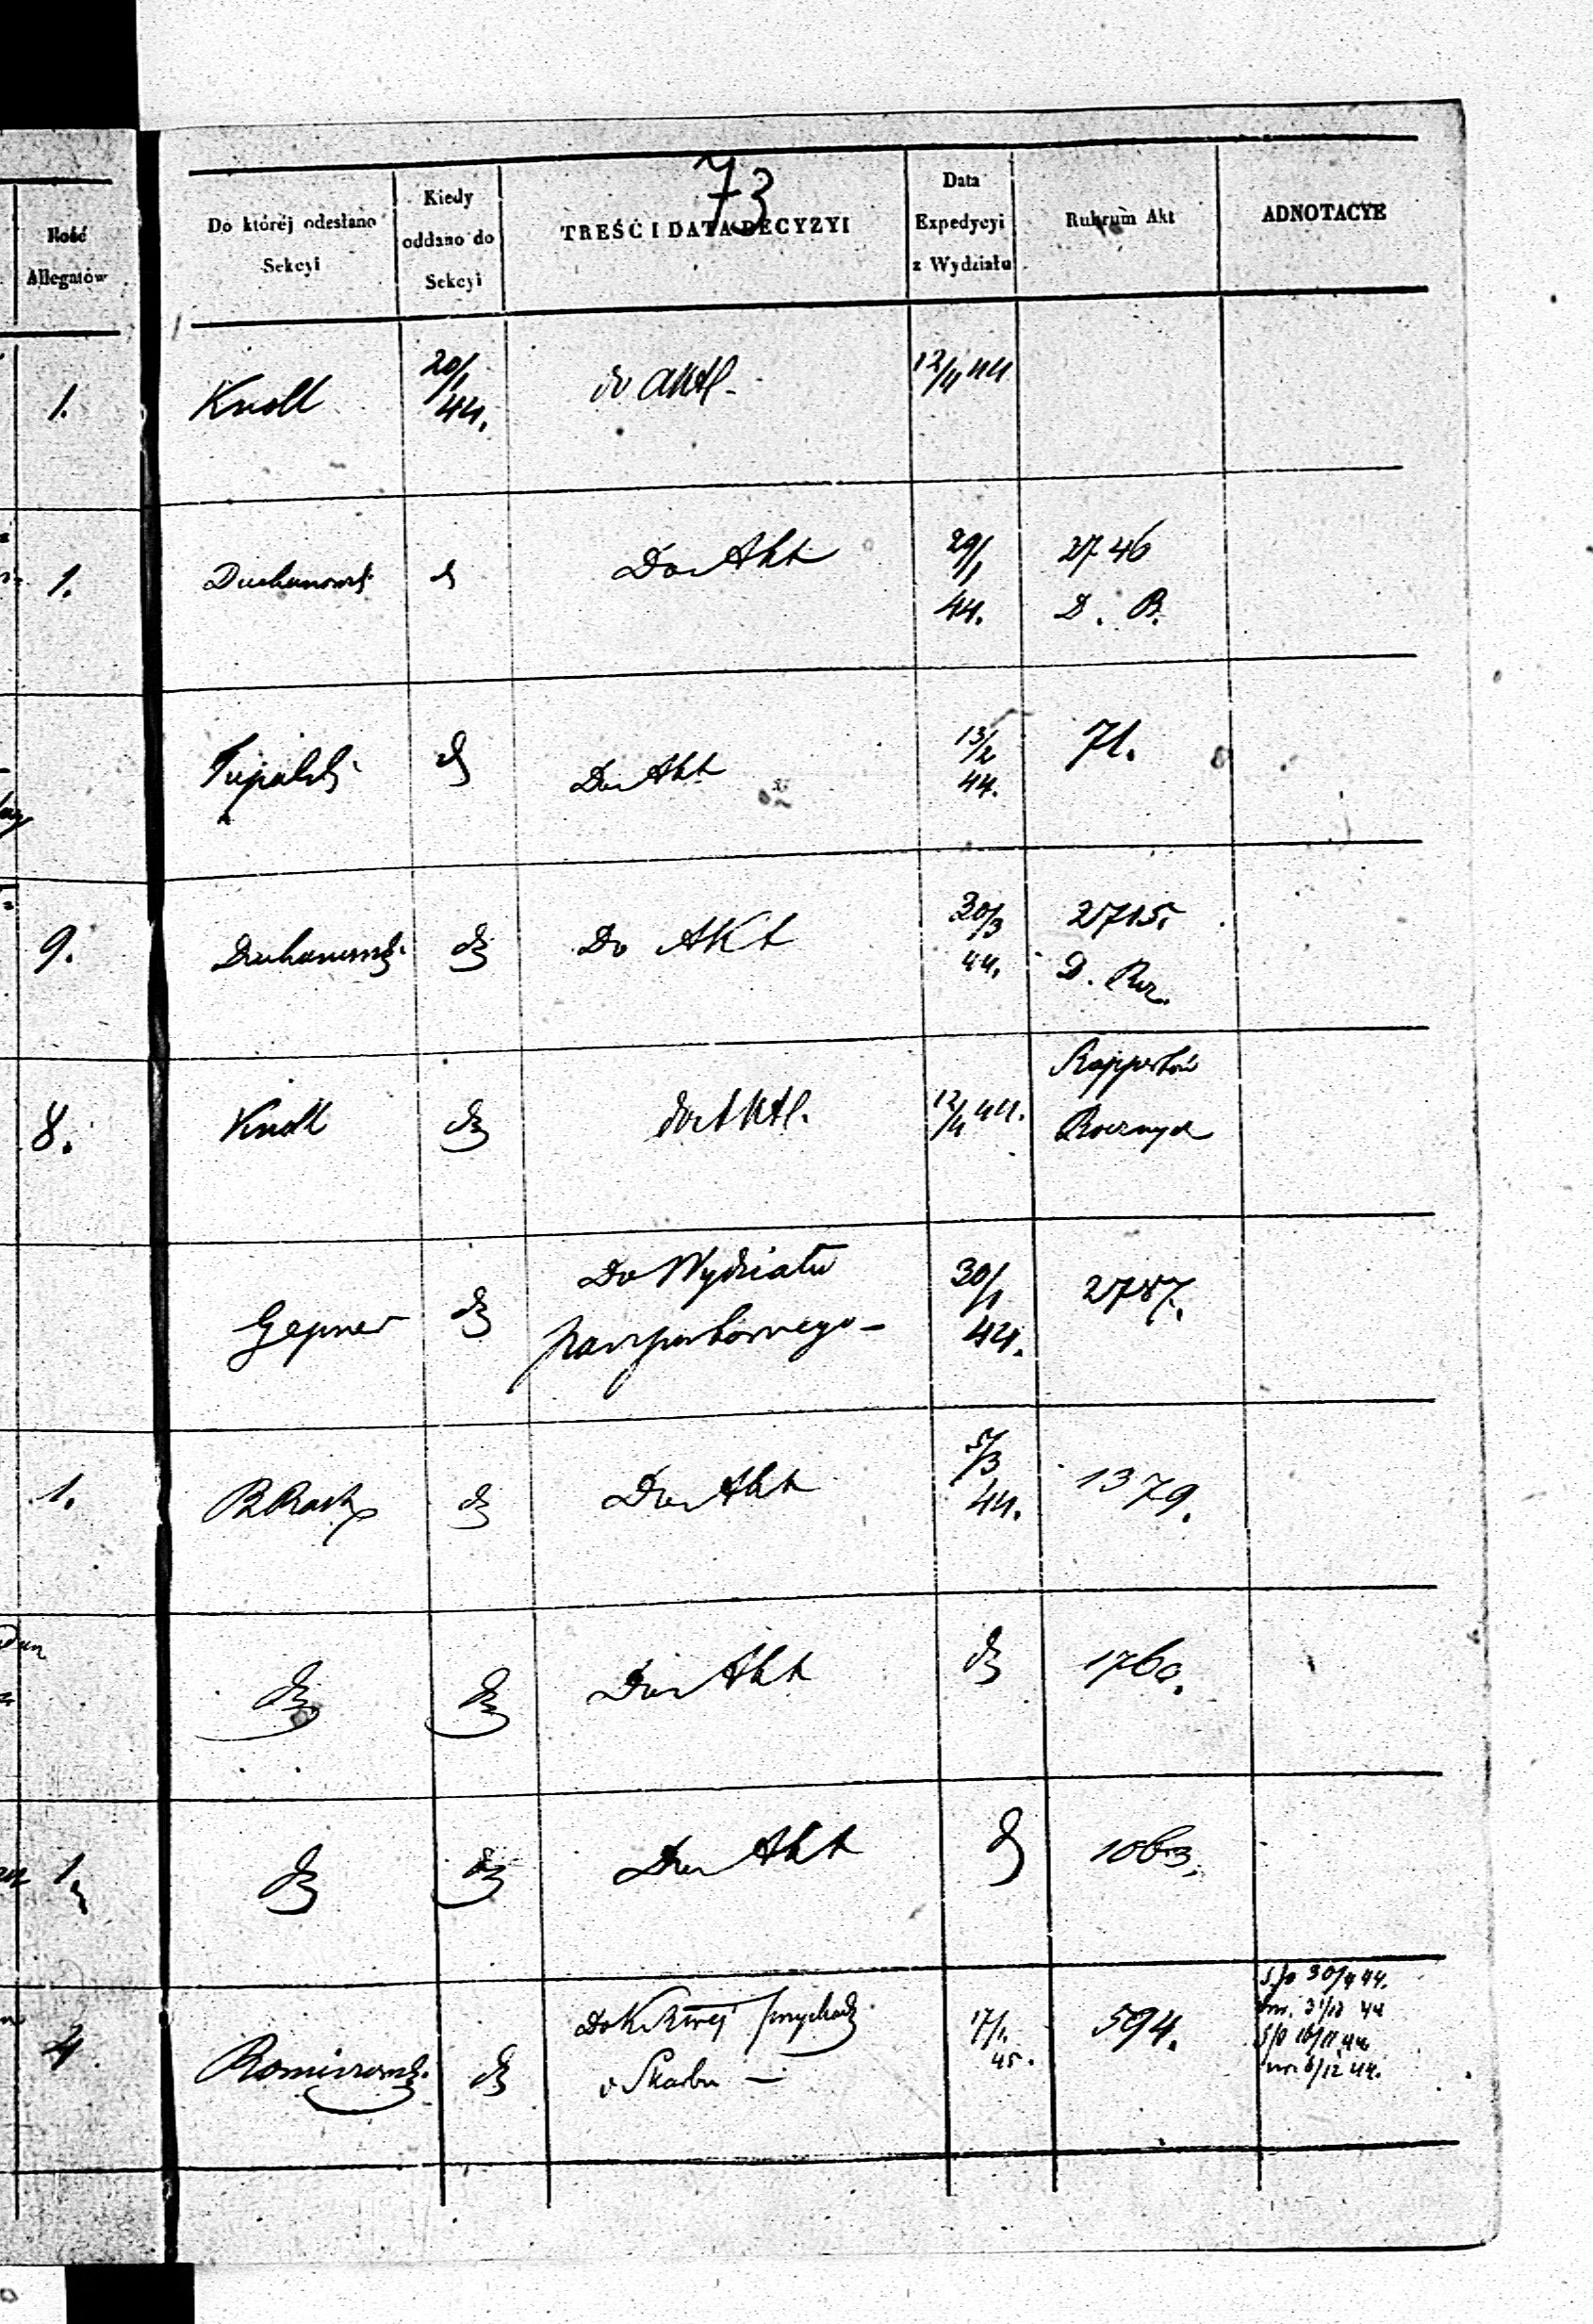 73
Ilość
Allegatów
Do której odesłano
Sekcyi
Kiedy
oddano do
Sekcyi
TREŚĆ I DATA DECYZYI
Data
Expedycyi
z Wydziału
Rubrum Akt
ADNOTACYE
1. Knoll 20/1 44. do Akt. 12/4 44
1. Duchanowski d Do Akt 29/1 44. 2746
D. B.
d Do Akt 13/2 44. 71.
9. Duchanowski d Do Akt 30/3 44. 2715.
D.
8. Knoll d do Akt. 12/4 44. Rapportów
Rocznych
Gepner d Do Wydziału 30/1 44. 2787.
paszportowego –
1. d Do Akt 5/3 44. 1379.
d d Do Akt d 1760.
1. d d Do Akt d 1063.
4 d Do przychod. 17/1. 45. 594. 30/4 44.
Skarbu — 31/12 44
16/11 44
6/12 44.